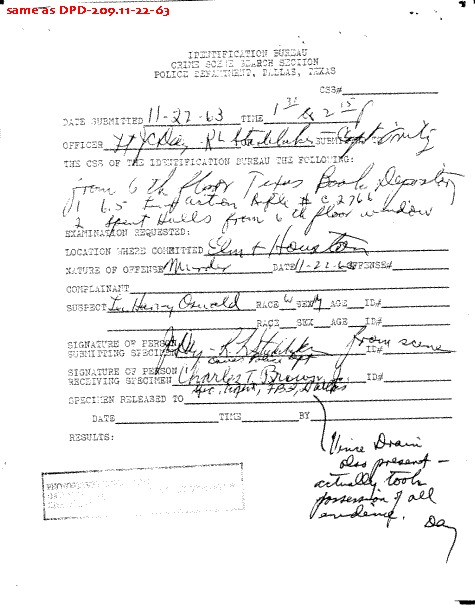 same as DPD-209.11-22-63
IDENTIFICATION BUREAU
CRIME SCENE SEARCH SECTION
POLICE DEPARTMENT, DALLAS, TEXAS
CSS#
DATE SUBMITTED 11-22-63 TIME 1 30 & 2 15 P
OFFICER H JC Day - RL Studebaker - SUBM
THE CSS OF THE IDENTIFICATION BUREAU THE FOLLOWING:
from 6th floor Texas Book Depository
1 6.5 Rifle # C2766
2 Spent Hulls from 6th floor window
EXAMINATION REQUESTED:
LOCATION WHERE COMMITTED Elm & Houston
NATURE OF OFFENSE Murder DATE 11-22-63 OFFENSE#
COMPLAINANT
SUSPECT Lee Harvey Oswald RACE W SEX M AGE ID#
RACE SEX AGE ID#
SIGNATURE OF PERSON
SUBMITTING SPECIMEN Day - R L Studebaker from scene ID#
Police Dpt
SIGNATURE OF PERSON
RECEIVING SPECIMEN Charles T Brown Jr ID#
Spec. Agent, FBI, Dallas
SPECIMEN RELEASED TO
DATE TIME BY
RESULTS:
Vince Drain
also present -
actually took
possession of all
evidence.
Day